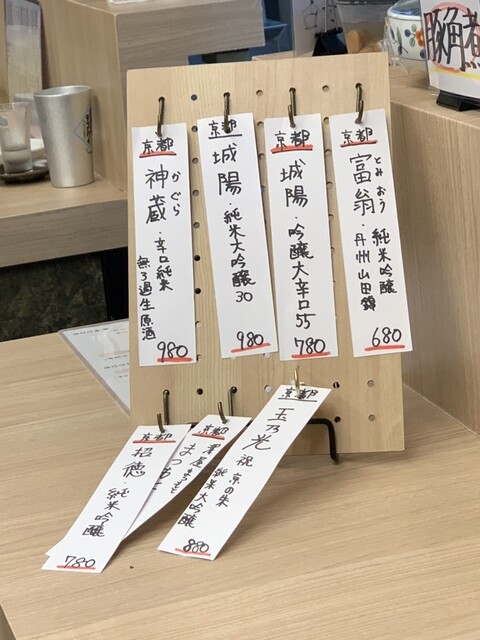 京都
神蔵・辛口純米
かぐら
無ろ過生原酒
980
京都
城陽・純米大吟醸30
980
京都
城陽・吟醸大辛口55
780
京都
富翁・純米吟醸
とみおう
丹州山田錦
680
京都
招徳・純米吟醸
780
京都
澤屋まつもと
京都
玉乃光 祝 京の朱
純米大吟醸
880
豚角煮